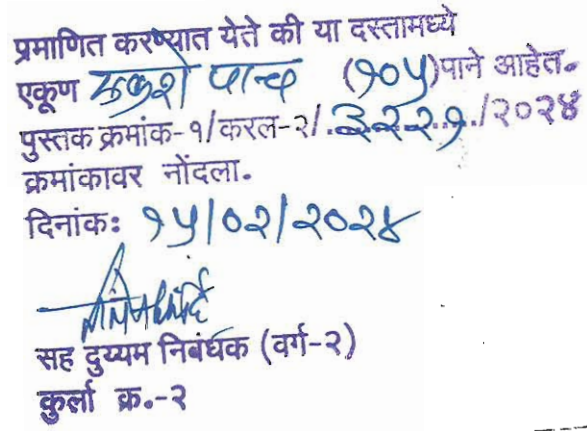 प्रमाणित करण्यात येते की या दस्तामध्ये
एकूण एकशे पान्च (१०५) पाने आहेत.
पुस्तक क्रमांक-१/करल-२/.३२२१./२०२४
क्रमांकावर नोंदला.
दिनांक: १५/०२/२०२४
सह दुय्यम निबंधक (वर्ग-२)
कुर्ला क्र.-२